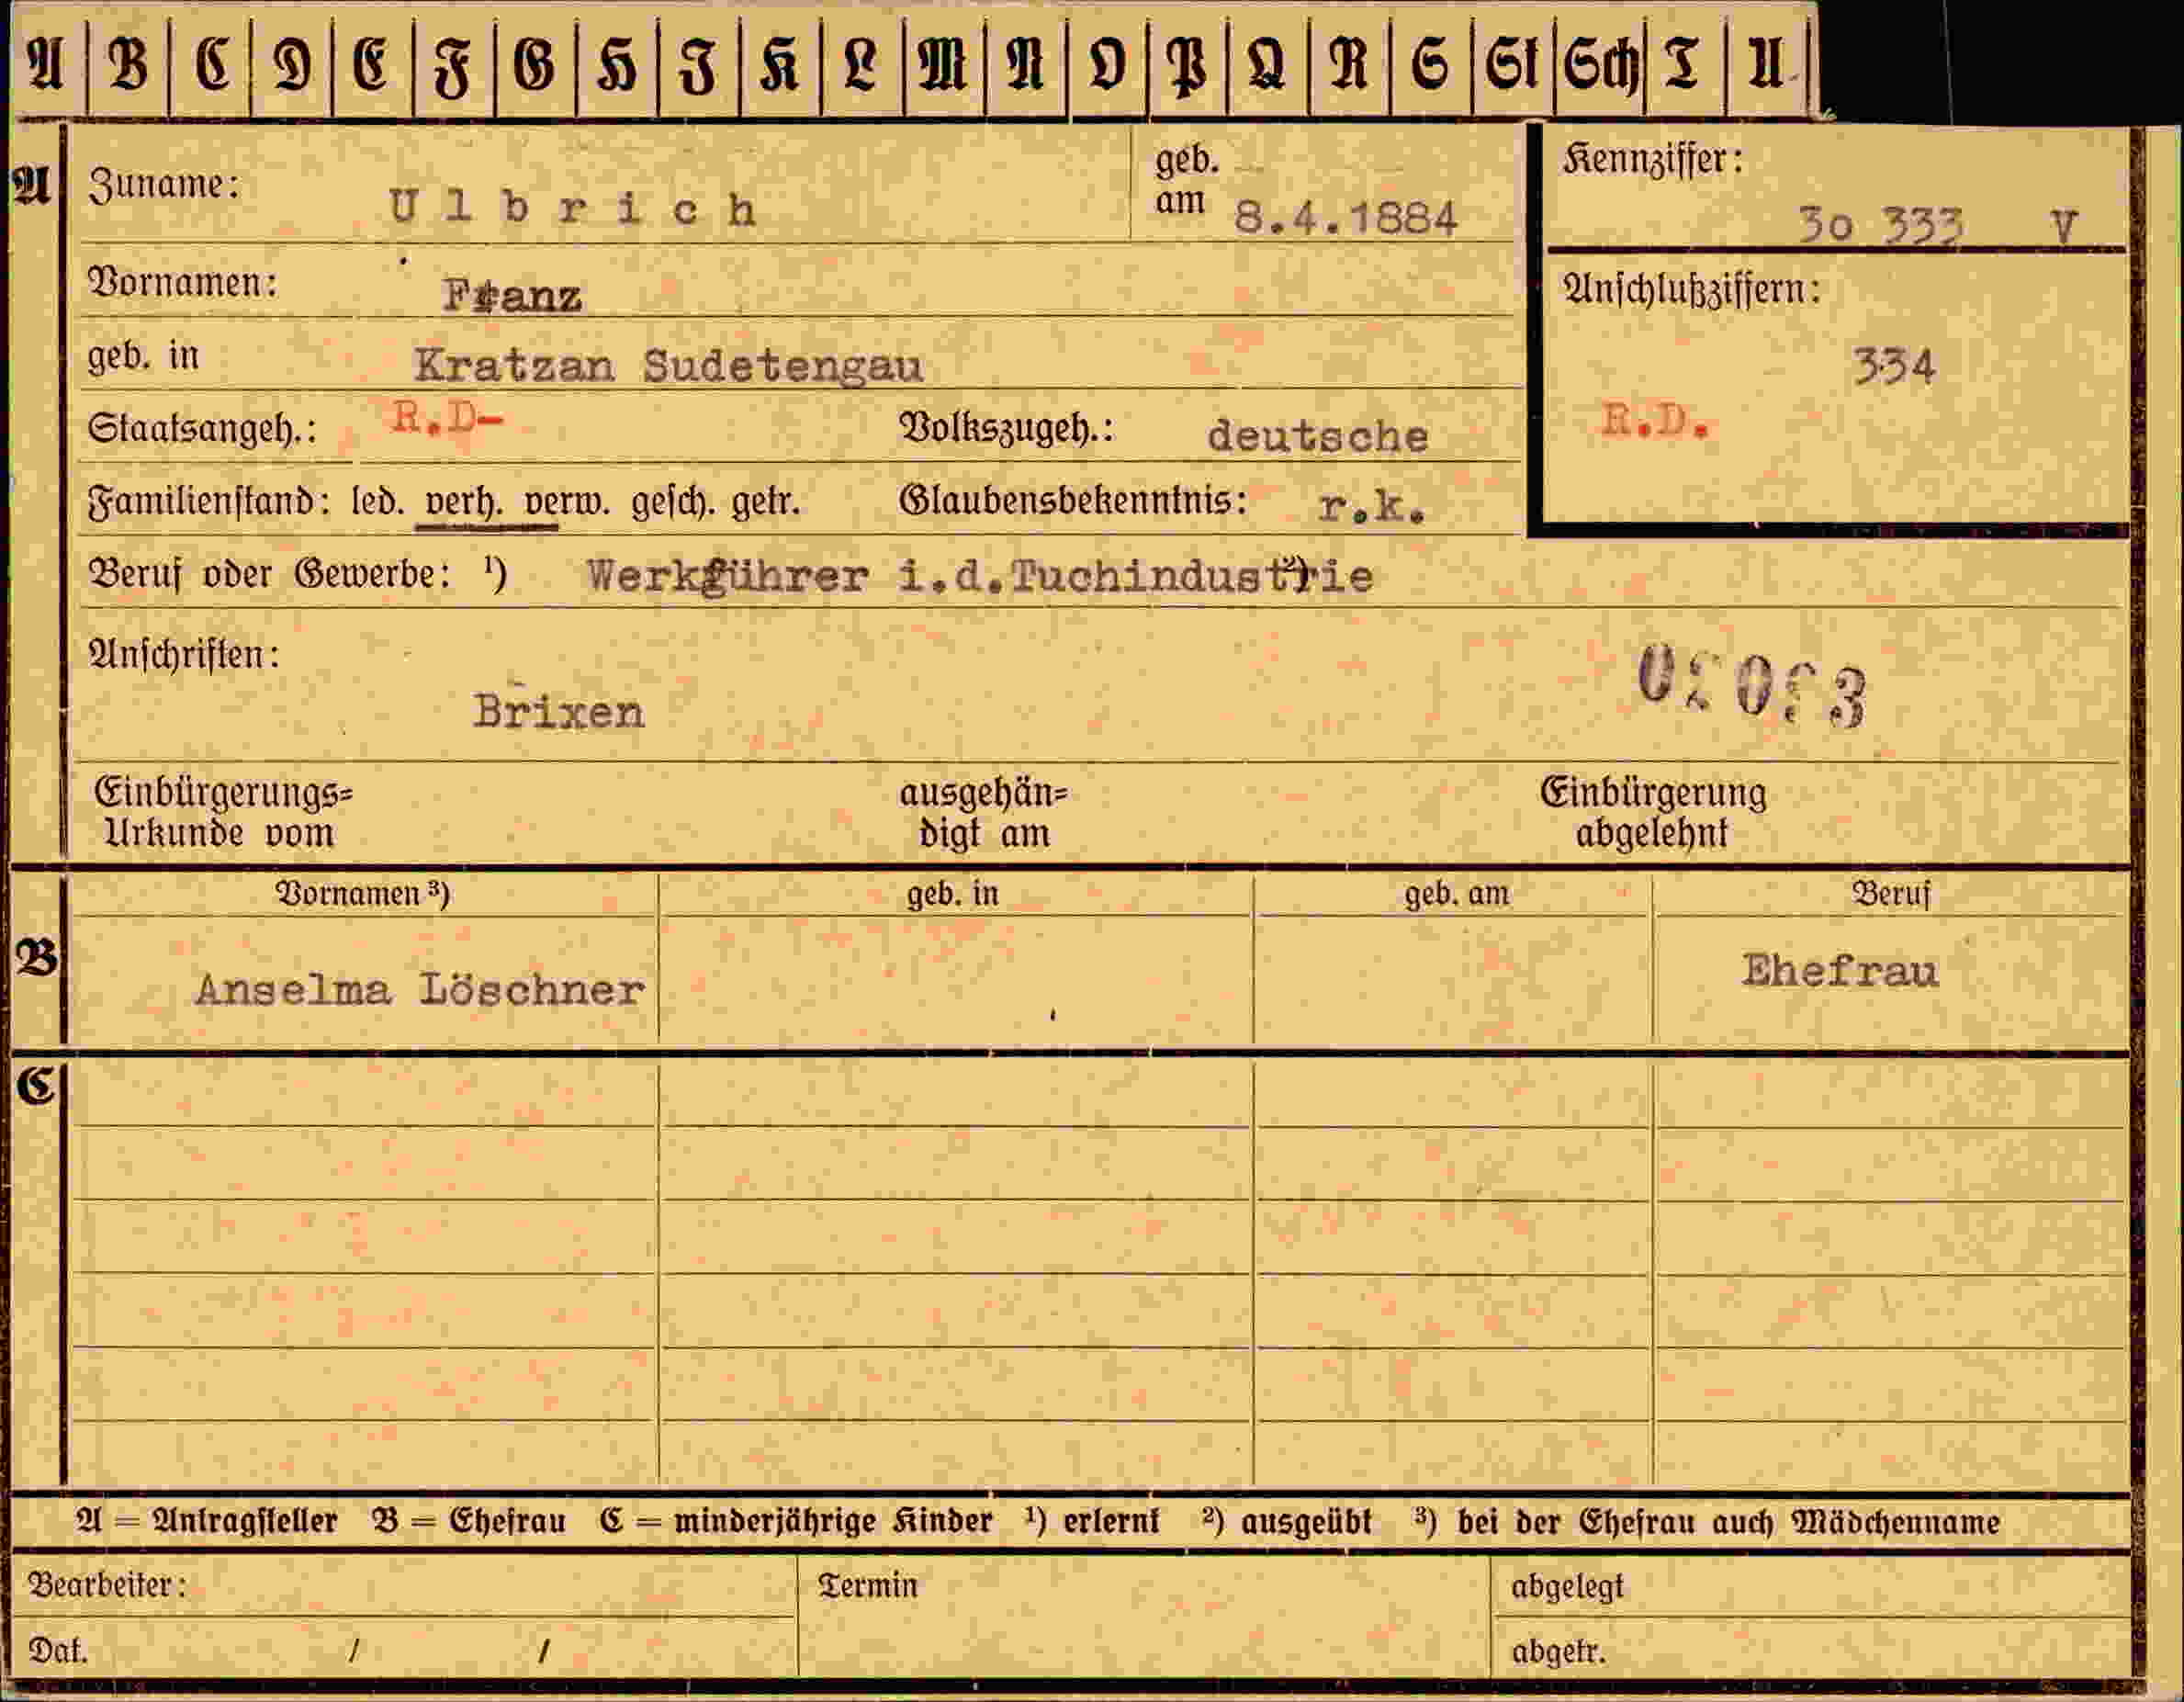 A B C D E F G H I K L M N O P Q R S St Sch T U
A Zuname: Ulbrich geb. am 8.4.1884 Kennziffer: 30 333 V
Vornamen: Franz Anschlußziffern:
geb. in Kratzan Sudetengau 334
Staatsangeh.: R.D- Volkszugeh.: deutsche R.D.
Familienstand: led. verh. verw. gesch. getr. Glaubensbekenntnis: r.k.
Beruf oder Gewerbe: ¹) Werkführer i.d.Tuchindustrie ²)
Anschriften:
Brixen
Einbürgerungs= ausgehän= Einbürgerung
Urkunde vom digt am abgelehnt
Vornamen ³) geb. in geb. am Beruf
B Anselma Löschner Ehefrau
C
A = Antragsteller B = Ehefrau C = minderjährige Kinder ¹) erlernt ²) ausgeübt ³) bei der Ehefrau auch Mädchenname
Bearbeiter: Termin abgelegt
Dat. / / abgetr.